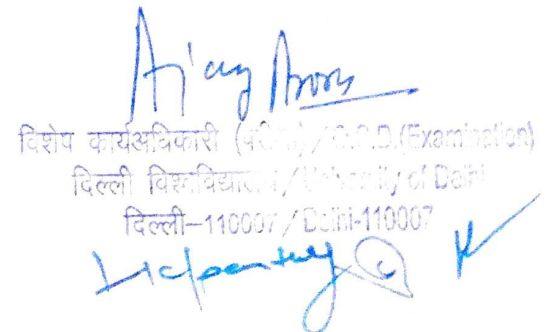 Ajay Arora
विशेष कार्यअधिकारी (परीक्षा) / O.S.D.(Examination)
दिल्ली विश्वविद्यालय / University of Delhi
दिल्ली-110007 / Delhi-110007